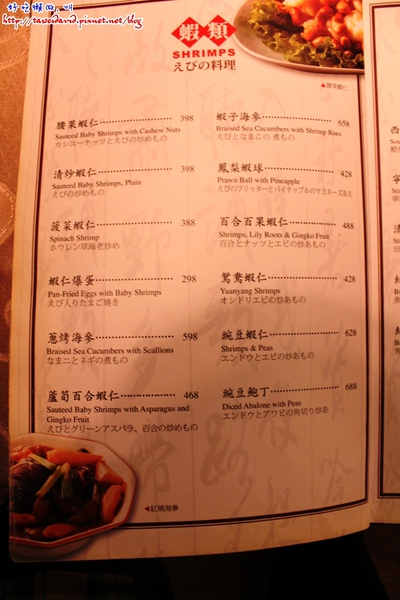 http://taweidavid.pixnet.net/blog
蝦類
SHRIMPS
えびの料理
▲腰果蝦仁
腰果蝦仁 398
Sauteed Baby Shrimps with Cashew Nuts
カシューナッツとえびの炒めもの
清炒蝦仁 398
Sauteed Baby Shrimps, Plain
えびの炒めもの
菠菜蝦仁 388
Spinach Shrimp
ホウレン草海老炒め
蝦仁爆蛋 298
Pan-Fried Eggs with Baby Shrimps
えび入りたまご焼き
蔥烤海參 598
Braised Sea Cucumbers with Scallions
なまことネギの煮もの
蘆筍百合蝦仁 468
Sauteed Baby Shrimps with Asparagus and
Gingko Fruit
えびとグリーンアスパラ、百合の炒めもの
蝦子海參 658
Braised Sea Cucumbers with Shrimp Roes
えびとなまこの煮もの
鳳梨蝦球 428
Prawn Ball with Pineapple
えびのフリッターとパイナップルのマヨネーズあえ
百合百果蝦仁 488
Shrimps, Lily Roots & Gingko Fruit
百合とナッツとエビの炒あもの
鴛鴦蝦仁 428
Yuanyang Shrimps
オシドリエビの炒あもの
豌豆蝦仁 628
Shrimps & Peas
エンドウとエビの炒あもの
豌豆鮑丁 688
Diced Abalone with Peas
エンドウとアワビの角切り炒あ
◀紅燒海參